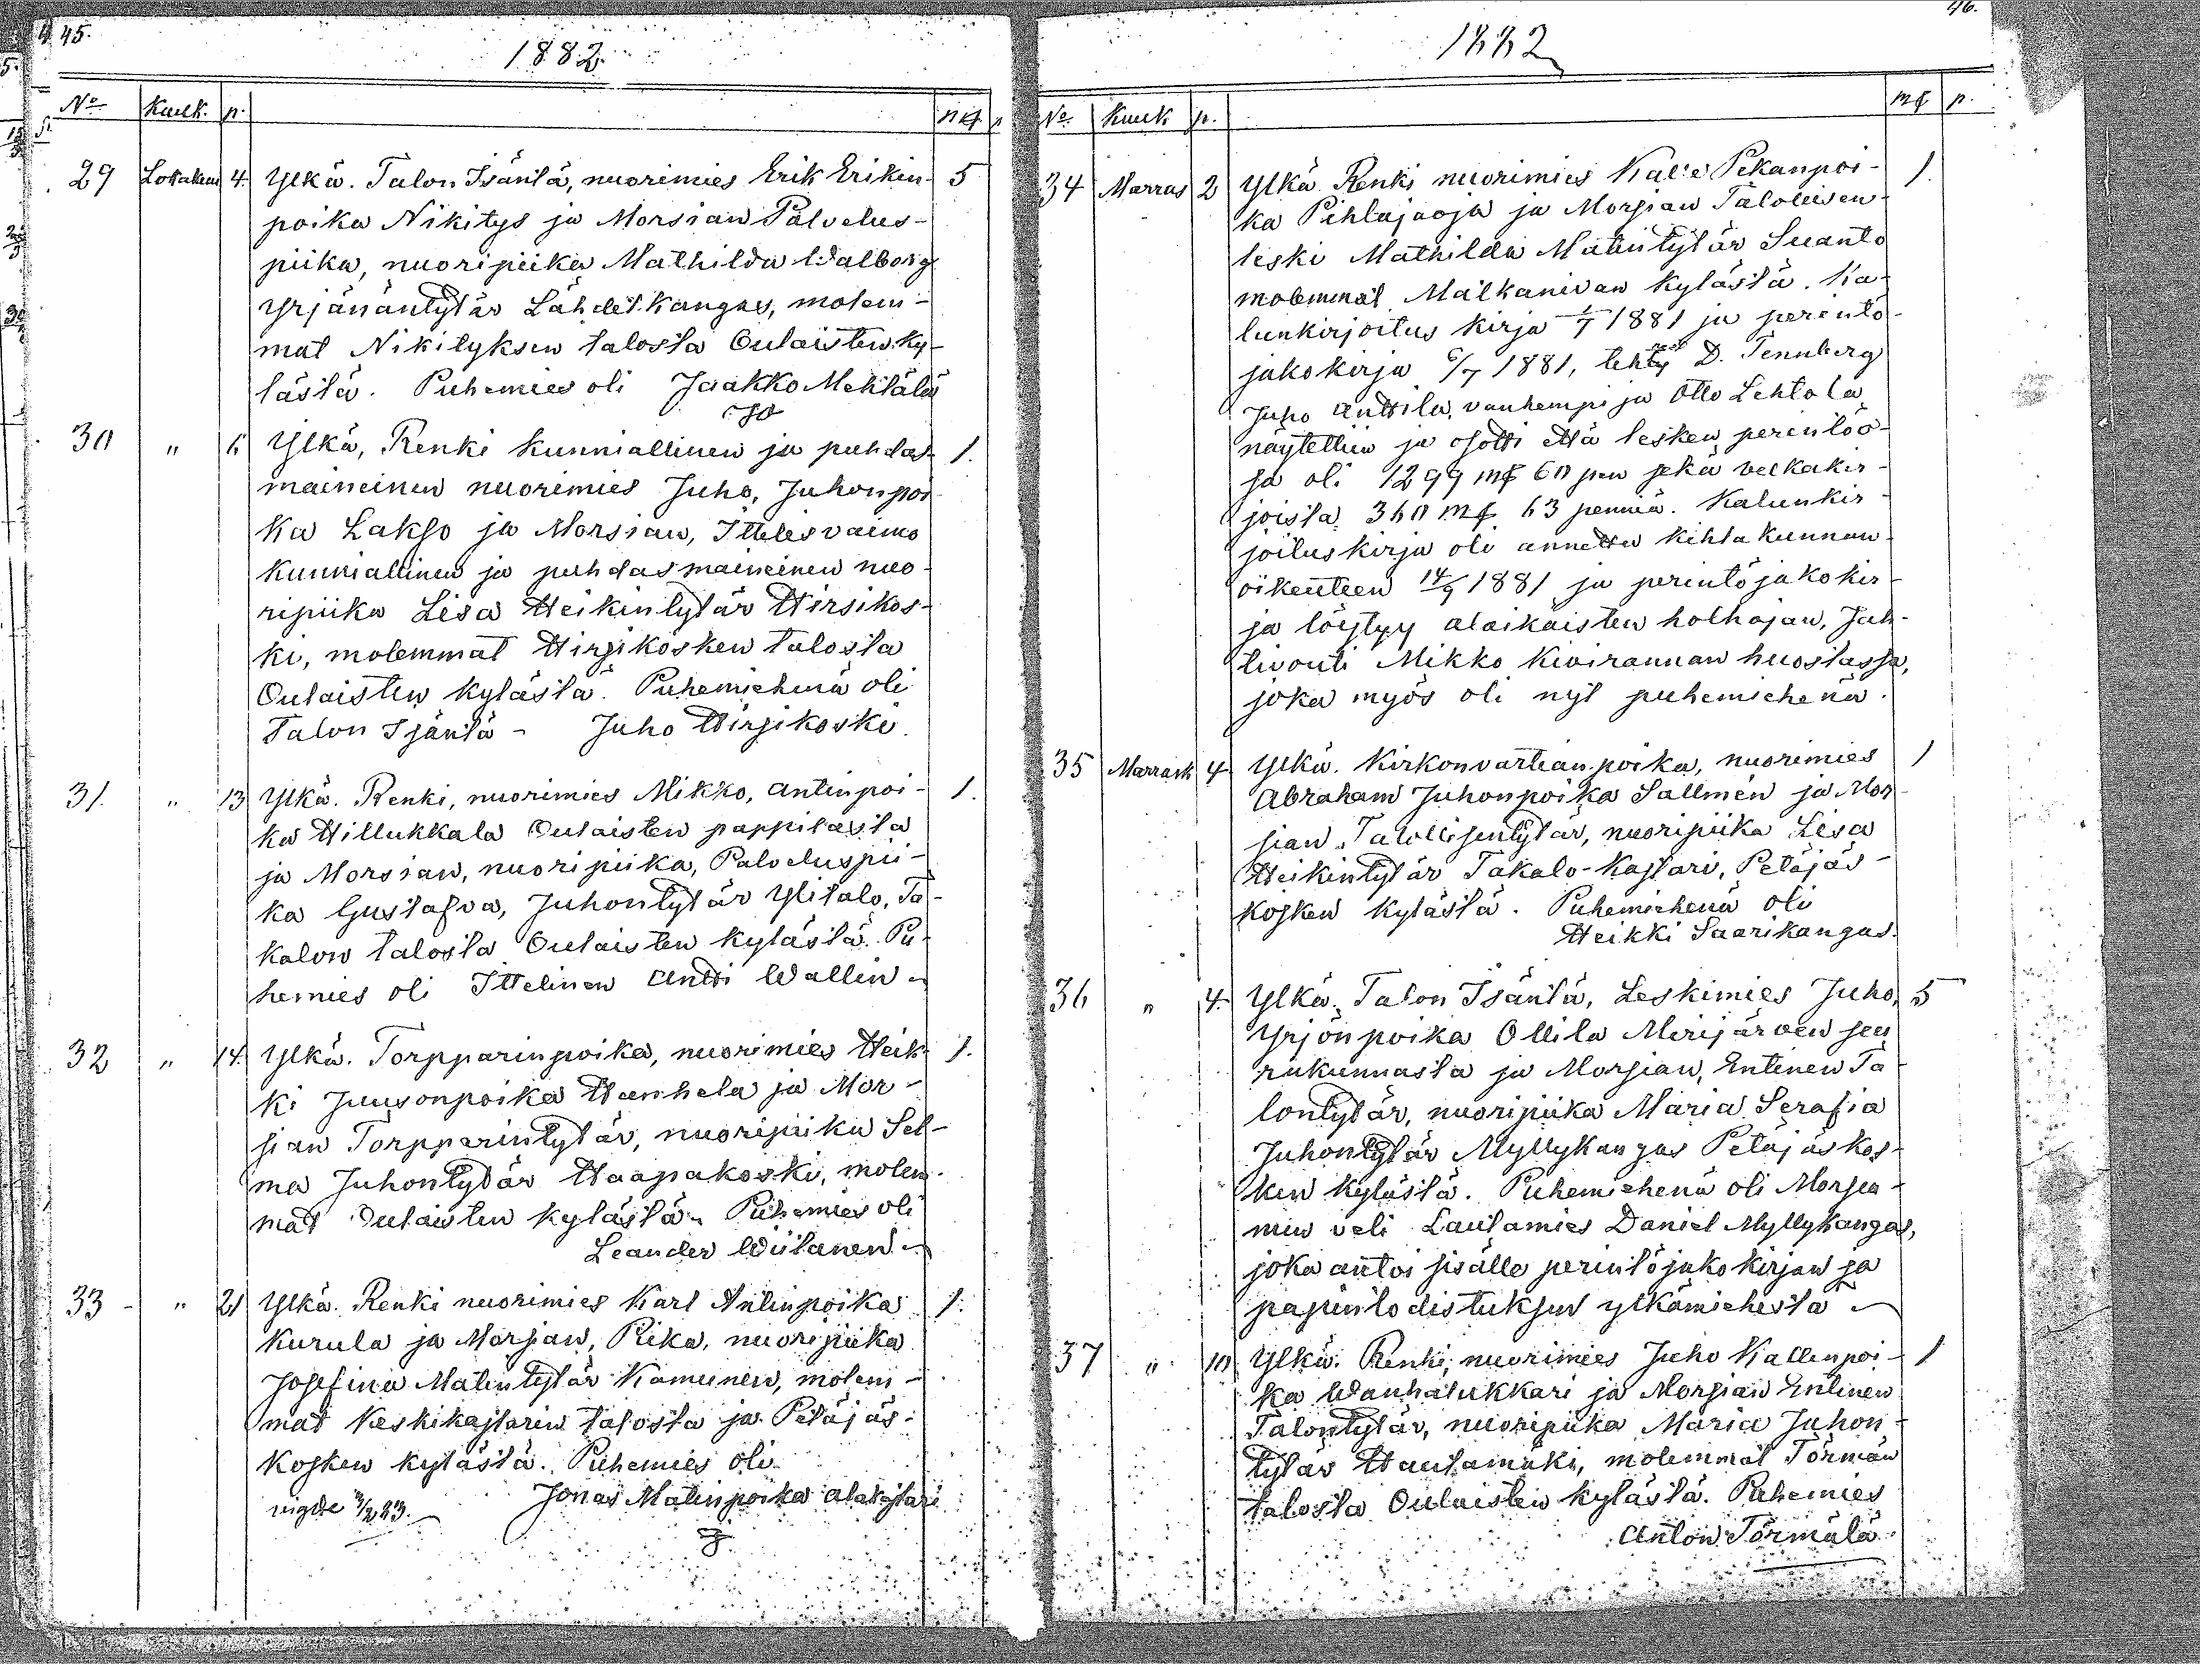 45.
1882.
No Kuuk. p. mk p
29 Lokakuu 4. Ylkä. Talon Isäntä, nuorimies Erik Erikin- 5
poika Nikitys ja Morsian Palvelus-
piika, nuoripiika Mathilda Walborg
Yrjänäntytär Lähdet Kangas, molem-
mat Nikityksen talosta Oulaisten ky-
lästä. Puhemies oli Jaakko Mehtälä
30 " 6 Ylkä, Renki kunniallinen ja puhdas- 1.
maineinen nuorimies Juho, Juhonpoi-
ka Lakso ja Morsian, Ittelisvaimo
kunniallinen ja puhdasmaineinen nuo-
ripiika Lisa Heikintytär Hirsikos-
ki, molemmat Hirsikosken talosta
Oulaisten kylästä. Puhemiehenä oli
Talon Isäntä - Juho Hirsikoski.
31. " 13 Ylkä. Renki, nuorimies Mikko, Antinpoi- 1.
ka Hillukkala Oulaisten pappilasta
ja Morsian, nuoripiika, Palveluspii-
ka Gustafva, Juhontytär Ylitalo, Ta-
kalon talosta Oulaisten kylästä. Pu-
hemies oli Ittelinen Antti Wallin
32 " 14. Ylkä. Torpparinpoika, nuorimies Heik- 1.
ki Juusonpoika Wanhela ja Mor-
sian Torpparintytär, nuoripiika Sel-
ma Juhontytär Haapakoski, molem-
mat Oulaisten kylästä. Puhemies oli
Leander Wiitanen
33 - " 21 Ylkä. Renki nuorimies Karl Antinpoika 1.
Kurula ja Morsian, Piika, nuoripiika
Josefina Matintytär Kamunen, molem-
mat Keskikastarin talosta ja Petäjäs-
kosken kylästä. Puhemies oli
vigde Jonas Matinpoika Alakastari
46.
1882
No Kuuk p. mk p.
34 Marras 2 Ylkä Renki nuorimies Kalle Pekanpoi- 1.
ka Pihlajaoja ja Morsian Talollisen-
leski Mathilda Matintytär Suanto
molemmat Matkanivan kylästä. Ka-
lunkirjoitus kirja 1881 ja perintö-
jakokirja 6/7 1881, tehty D. Tennberg
Juho Anttila, vanhempi ja Otto Lehtola
näytettiin ja osotti että lesken perintöö-
sä oli 1299 mk 60 pen sekä velkakir-
joista 360 mk 63 penniä. Kalunkir-
joituskirja oli annettu kihlakunnan-
oikeuteen 14/9 1881 ja perintöjakokir-
ja löytyy alaikäisten holhojan, Jah-
tivouti Mikko Kivirannan huostassa,
joka myös oli nyt puhemiehenä.
35 Marrask 4 Ylkä. Kirkonvartianpoika, nuorimies 1
Abraham Juhonpoika Sallmén ja Mor-
sian, Talollisentytär, nuoripiika Lisa
Heikintytär Takalo-Kastari, Petäjäs-
kosken kylästä. Puhemiehenä oli
Heikki Saarikangas.
36 " 4. Ylkä. Talon Isäntä, Leskimies Juho, 5
Yrjönpoika Ollila Merijärven seu
rakunnasta ja Morsian, Entinen Ta-
lontytär, nuoripiika Maria Serafia
Juhontytär Myllykangas Petäjäskos-
ken kylästä. Puhemiehenä oli Morsia-
men veli Lautamies Daniel Myllykangas,
joka antoi sisälle perintöjakokirjan ja
papintodistuksen ylkämiehestä
37 " 10 Ylkä. Renki, nuorimies Juho Kallenpoi- 1
ka Wanhalukkari ja Morsian Entinen
Talontytär, nuoripiika Maria Juhon-
tytär Hautamäki, molemmat Törmän
talosta Oulaisten kylästä. Puhemies
Anton Törmälä